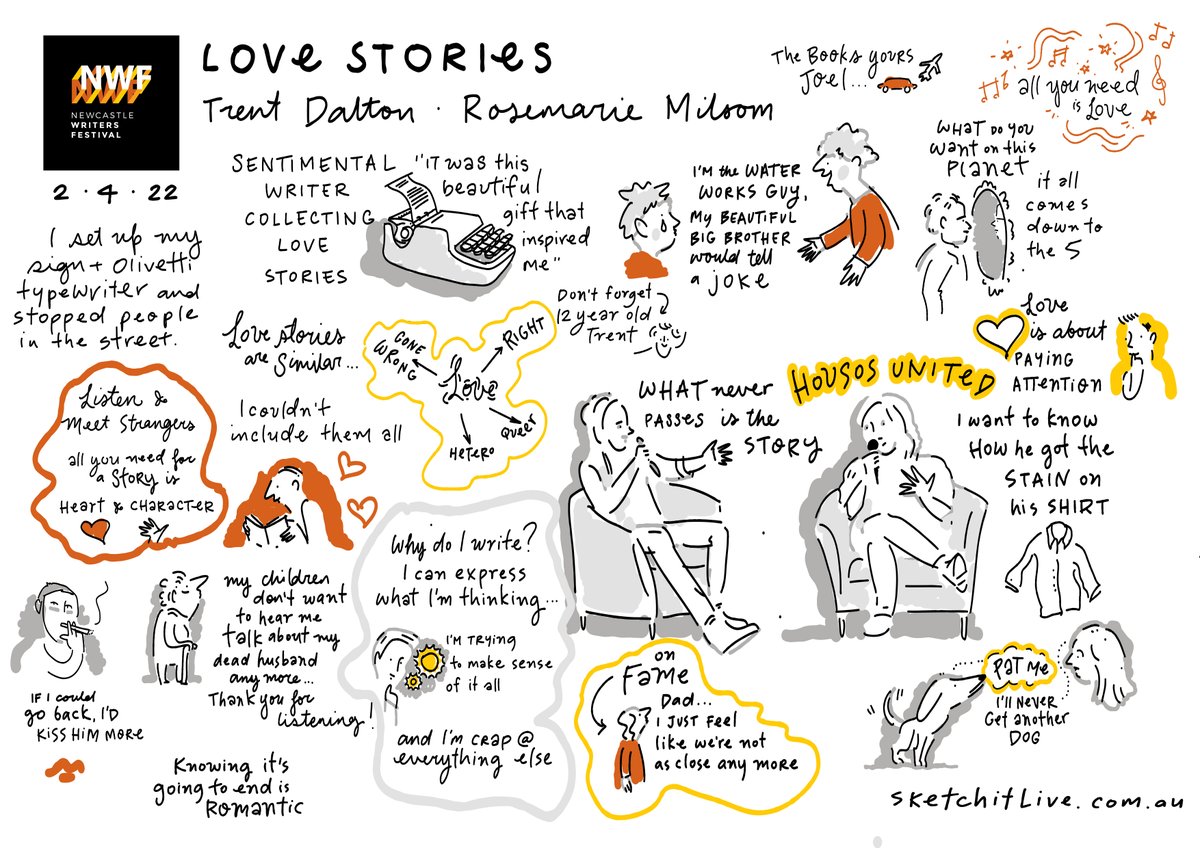 NWF
NEWCASTLE
WRITERS
FESTIVAL
2 · 4 · 22
LOVE STORIES
Trent Dalton · Rosemarie Milsom
The Books yours
Joel...
all you need
is Love
I set up my
sign + Olivetti
typewriter and
stopped people
in the street.
SENTIMENTAL
WRITER
COLLECTING
LOVE
STORIES
"IT was this
beautiful
gift that
inspired
me"
I'm the WATER
WORKS GUY,
MY BEAUTIFUL
BIG BROTHER
would tell
a JOKE
Don't forget
12 year old
Trent
WHAT do you
want on this
Planet
it all
comes
down to
the 5
Love
is about
PAYING
ATTENTION
Love stories
are similar...
GONE
WRONG
RIGHT
Love
HETERO
Queer
I couldn't
include them all
Listen &
Meet Strangers
all you need for
a Story is
HEART & CHARACTER
WHAT never
PASSES is the
STORY
HOUSOS UNITED
I want to know
How he got the
STAIN on
his SHIRT
IF I could
go back, I'D
KISS HIM MORE
my children
don't want
to hear me
talk about my
dead husband
any more...
Thank you for
listening!
Knowing it's
going to end is
ROMANTIC
Why do I write?
I can express
what I'm thinking...
I'm TRYING
to make sense
of it all
and I'm CRAP @
everything else
on
Fame
Dad...
I JUST Feel
like we're not
as close any more
PAT Me
I'll Never
Get another
DOG
sketchitLive.com.au